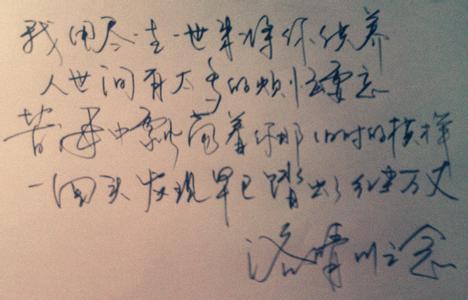 我用尽一生一世来将你供养
人世间有太多的烦恼要忘
苦海中飘荡着你那旧时的模样
一回头发现早已踏出了红尘万丈
之念